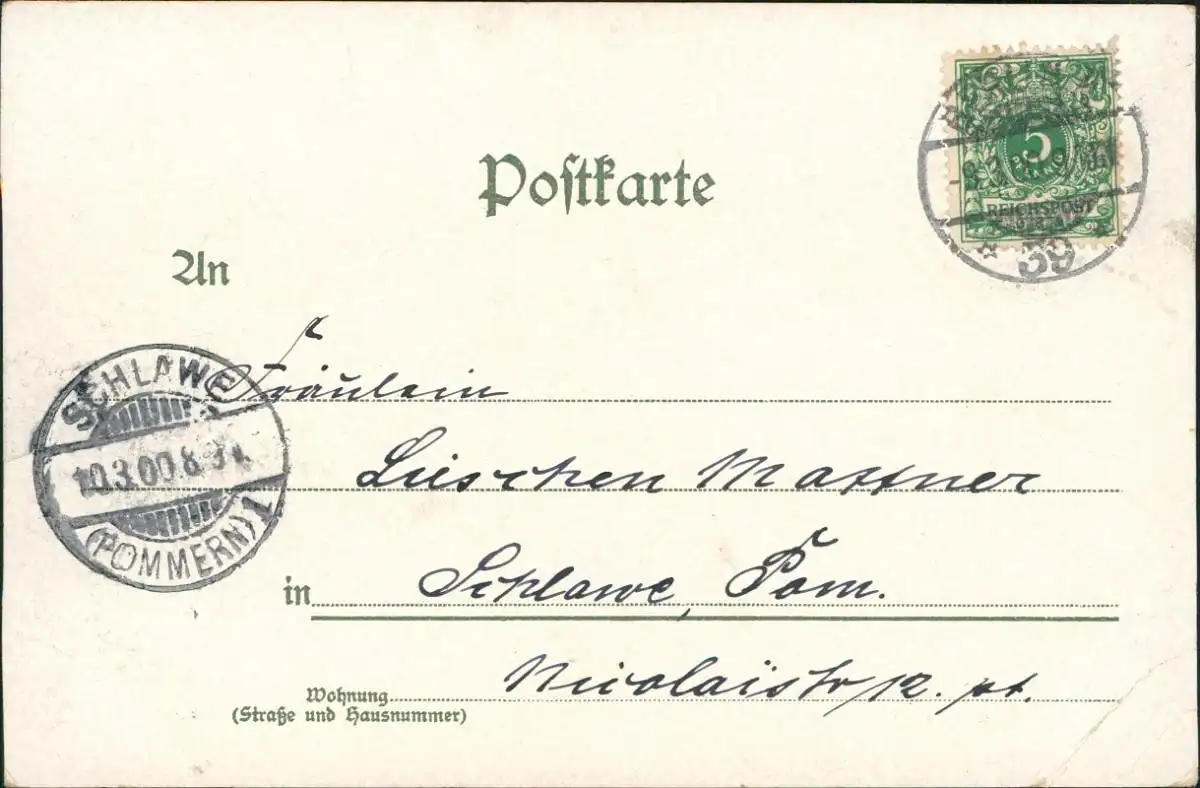 Postkarte
5
PFENNIG
REICHSPOST
39
An
Fräulein
SCHLAWE
10.3.00.8
(POMMERN) 1
Lieschen Mattner
in Schlawe, Pom.
Nicolaïstr 12. pt.
Wohnung
(Straße und Hausnummer)